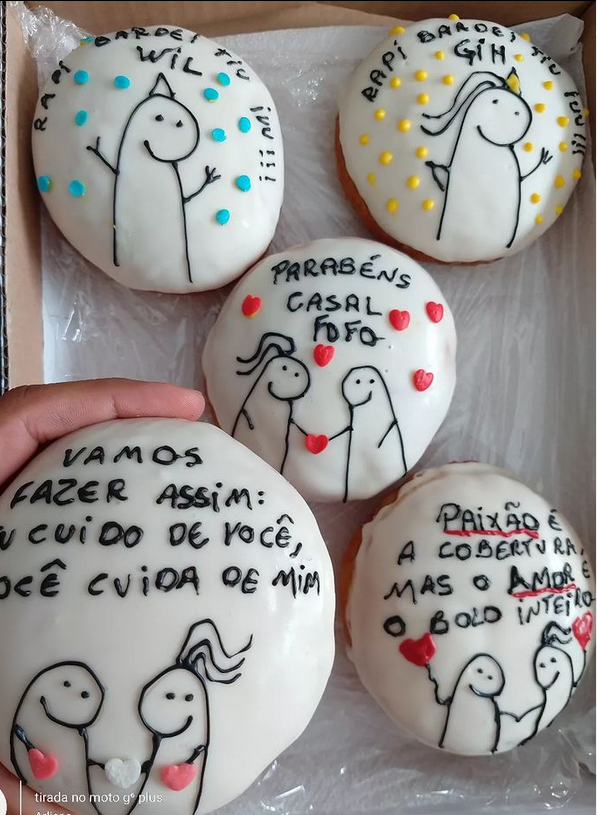 RAPI BARDEI TIU
WIL
¡¡¡ M!
RAPI BARDEI TIU IUU!!!
GIH
PARABÉNS
CASAL
FOFO
VAMOS
FAZER ASSIM:
U CUIDO DE VOCÊ,
OCÊ CUIDA DE MIM
PAIXÃO É
A COBERTURA,
MAS O AMOR É
O BOLO INTEIRO
tirada no moto g⁹ plus